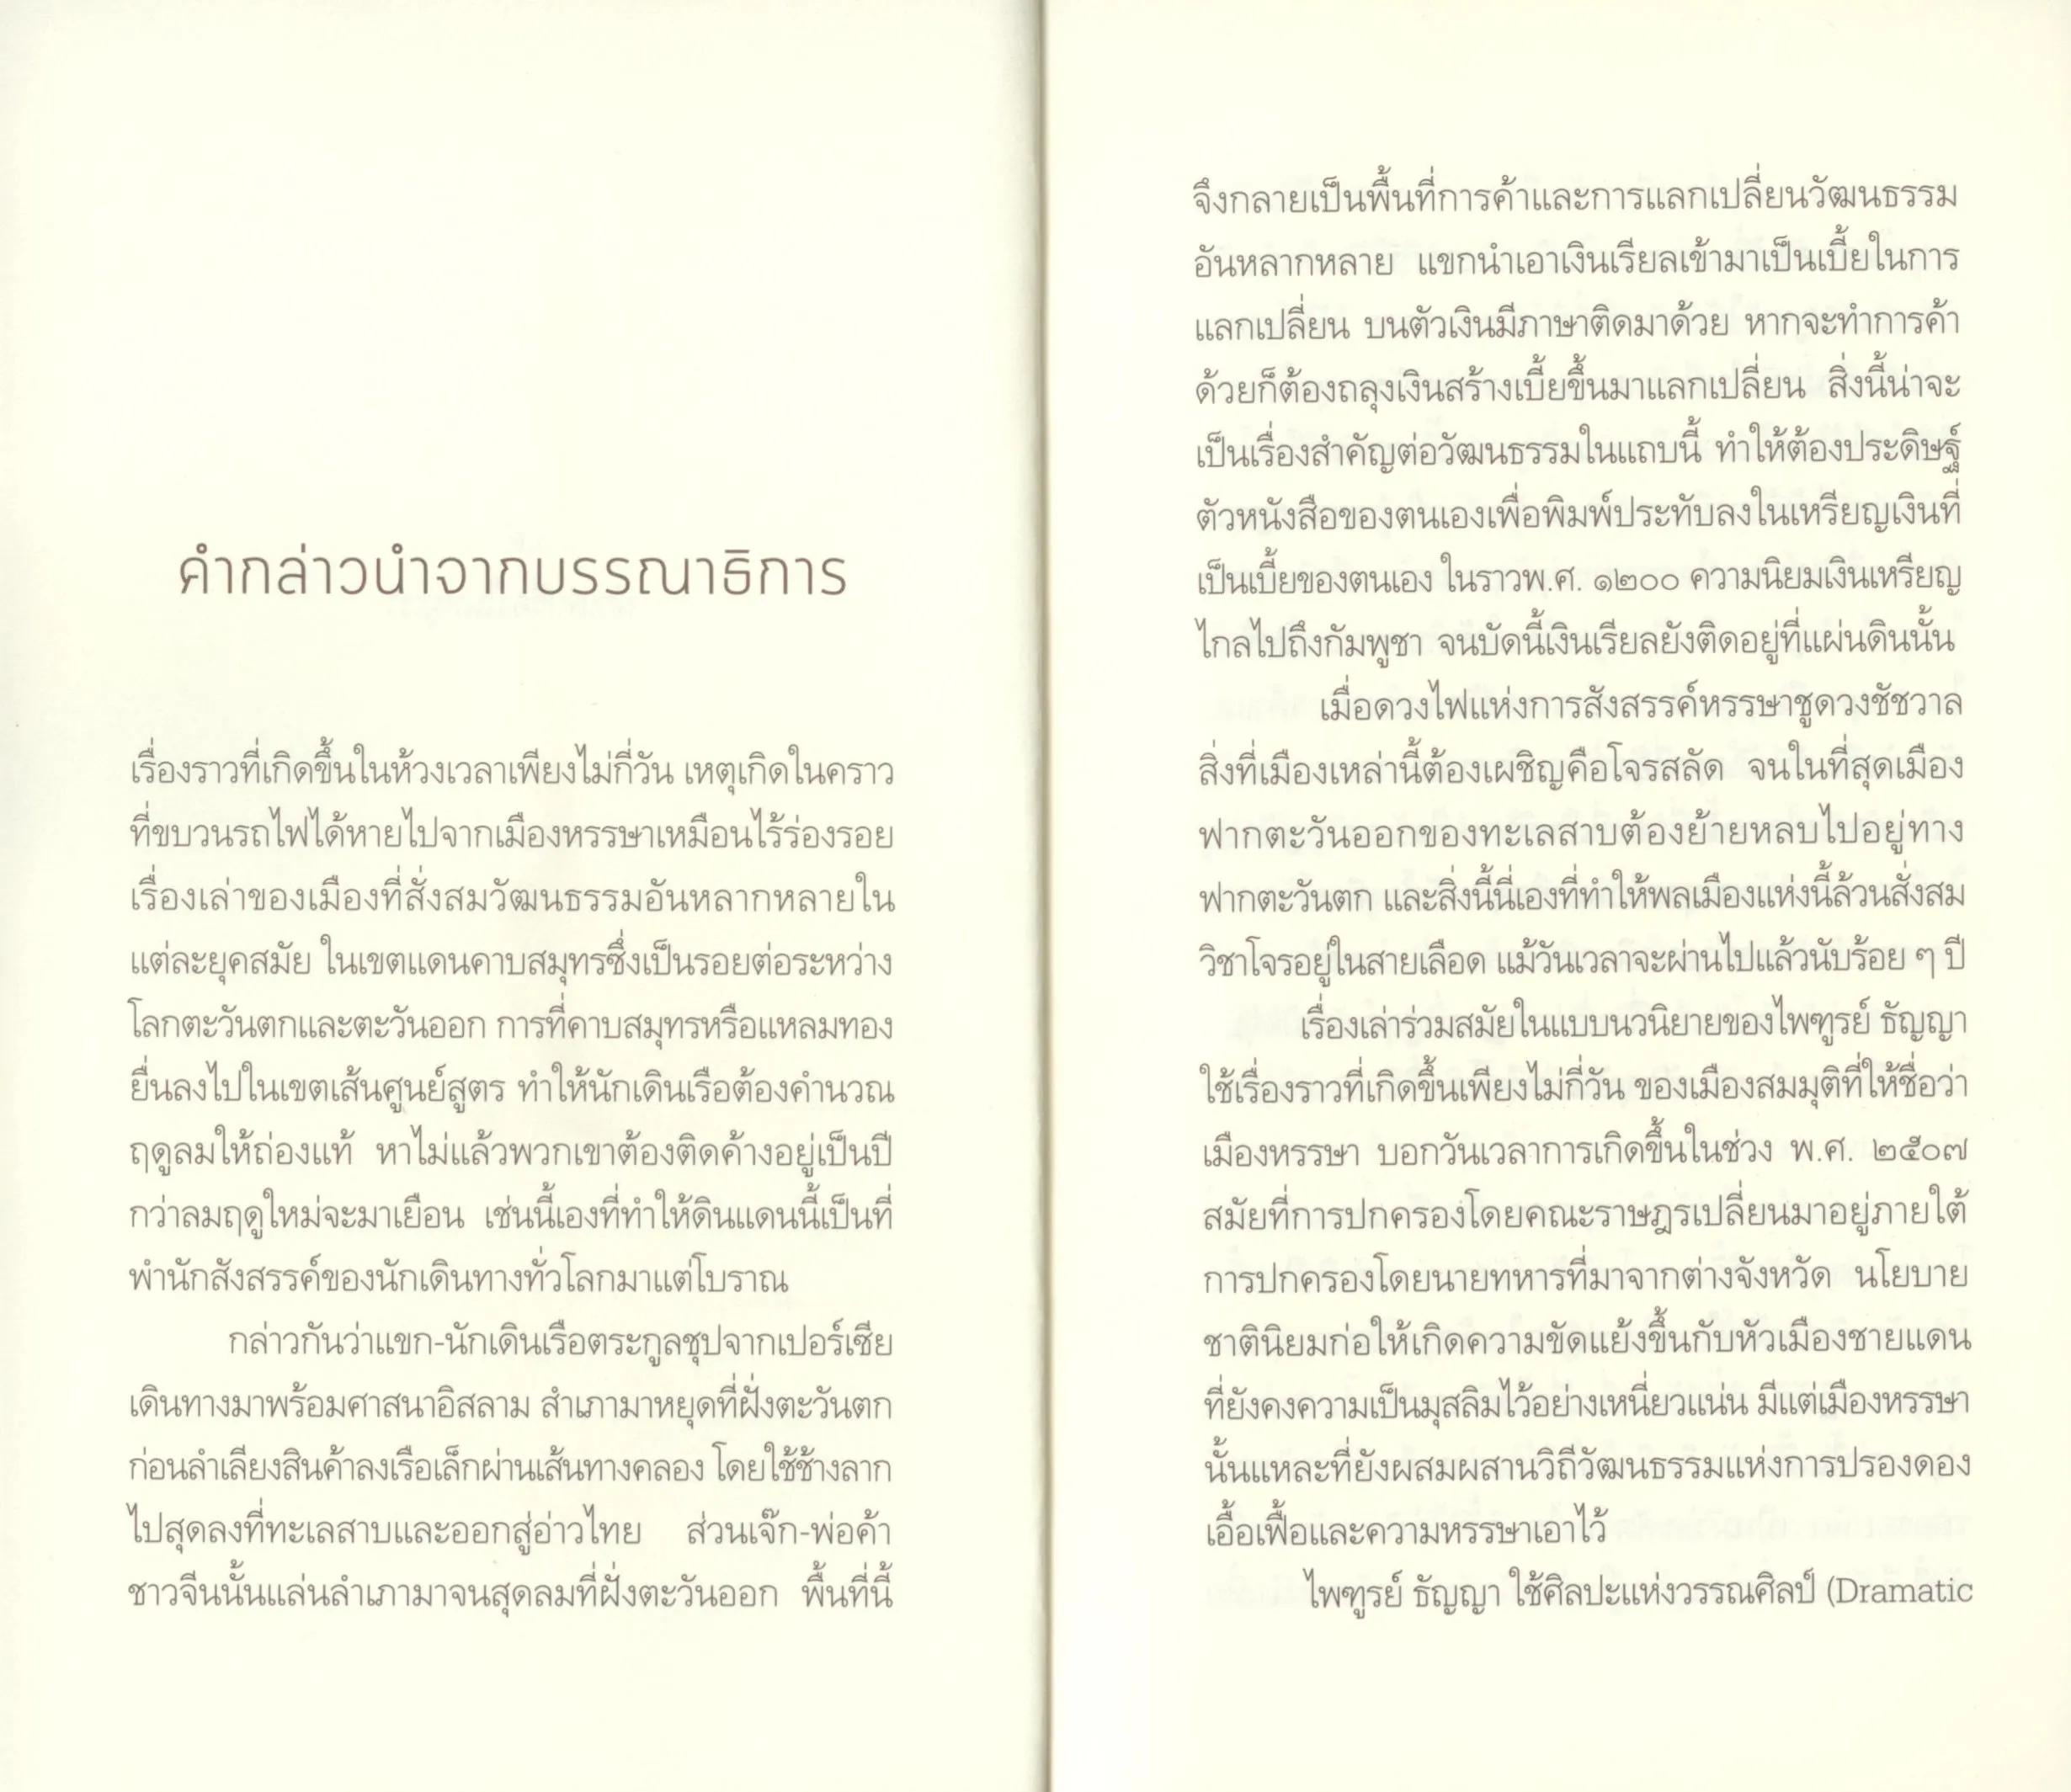 คำกล่าวนำจากบรรณาธิการ
เรื่องราวที่เกิดขึ้นในห้วงเวลาเพียงไม่กี่วัน เหตุเกิดในคราว
ที่ขบวนรถไฟได้หายไปจากเมืองหรรษาเหมือนไร้ร่องรอย
เรื่องเล่าของเมืองที่สั่งสมวัฒนธรรมอันหลากหลายใน
แต่ละยุคสมัย ในเขตแดนคาบสมุทรซึ่งเป็นรอยต่อระหว่าง
โลกตะวันตกและตะวันออก การที่คาบสมุทรหรือแหลมทอง
ยื่นลงไปในเขตเส้นศูนย์สูตร ทำให้นักเดินเรือต้องคำนวณ
ฤดูลมให้ถ่องแท้ หาไม่แล้วพวกเขาต้องติดค้างอยู่เป็นปี
กว่าลมฤดูใหม่จะมาเยือน เช่นนี้เองที่ทำให้ดินแดนนี้เป็นที่
พำนักสังสรรค์ของนักเดินทางทั่วโลกมาแต่โบราณ
กล่าวกันว่าแขก-นักเดินเรือตระกูลชุปจากเปอร์เซีย
เดินทางมาพร้อมศาสนาอิสลาม สำเภามาหยุดที่ฝั่งตะวันตก
ก่อนลำเลียงสินค้าลงเรือเล็กผ่านเส้นทางคลอง โดยใช้ช้างลาก
ไปสุดลงที่ทะเลสาบและออกสู่อ่าวไทย ส่วนเจ๊ก-พ่อค้า
ชาวจีนนั้นแล่นลำเภามาจนสุดลมที่ฝั่งตะวันออก พื้นที่นี้
จึงกลายเป็นพื้นที่การค้าและการแลกเปลี่ยนวัฒนธรรม
อันหลากหลาย แขกนำเอาเงินเรียลเข้ามาเป็นเบี้ยในการ
แลกเปลี่ยน บนตัวเงินมีภาษาติดมาด้วย หากจะทำการค้า
ด้วยก็ต้องถลุงเงินสร้างเบี้ยขึ้นมาแลกเปลี่ยน สิ่งนี้น่าจะ
เป็นเรื่องสำคัญต่อวัฒนธรรมในแถบนี้ ทำให้ต้องประดิษฐ์
ตัวหนังสือของตนเองเพื่อพิมพ์ประทับลงในเหรียญเงินที่
เป็นเบี้ยของตนเอง ในราวพ.ศ. ๑๒๐๐ ความนิยมเงินเหรียญ
ไกลไปถึงกัมพูชา จนบัดนี้เงินเรียลยังติดอยู่ที่แผ่นดินนั้น
เมื่อดวงไฟแห่งการสังสรรค์หรรษาชูดวงชัชวาล
สิ่งที่เมืองเหล่านี้ต้องเผชิญคือโจรสลัด จนในที่สุดเมือง
ฟากตะวันออกของทะเลสาบต้องย้ายหลบไปอยู่ทาง
ฟากตะวันตก และสิ่งนี้นี่เองที่ทำให้พลเมืองแห่งนี้ล้วนสั่งสม
วิชาโจรอยู่ในสายเลือด แม้วันเวลาจะผ่านไปแล้วนับร้อย ๆ ปี
เรื่องเล่าร่วมสมัยในแบบนวนิยายของไพฑูรย์ ธัญญา
ใช้เรื่องราวที่เกิดขึ้นเพียงไม่กี่วัน ของเมืองสมมุติที่ให้ชื่อว่า
เมืองหรรษา บอกวันเวลาการเกิดขึ้นในช่วง พ.ศ. ๒๕๐๗
สมัยที่การปกครองโดยคณะราษฎรเปลี่ยนมาอยู่ภายใต้
การปกครองโดยนายทหารที่มาจากต่างจังหวัด นโยบาย
ชาตินิยมก่อให้เกิดความขัดแย้งขึ้นกับหัวเมืองชายแดน
ที่ยังคงความเป็นมุสลิมไว้อย่างเหนี่ยวแน่น มีแต่เมืองหรรษา
นั้นแหละที่ยังผสมผสานวิถีวัฒนธรรมแห่งการปรองดอง
เอื้อเฟื้อและความหรรษาเอาไว้
ไพฑูรย์ ธัญญา ใช้ศิลปะแห่งวรรณศิลป์ (Dramatic